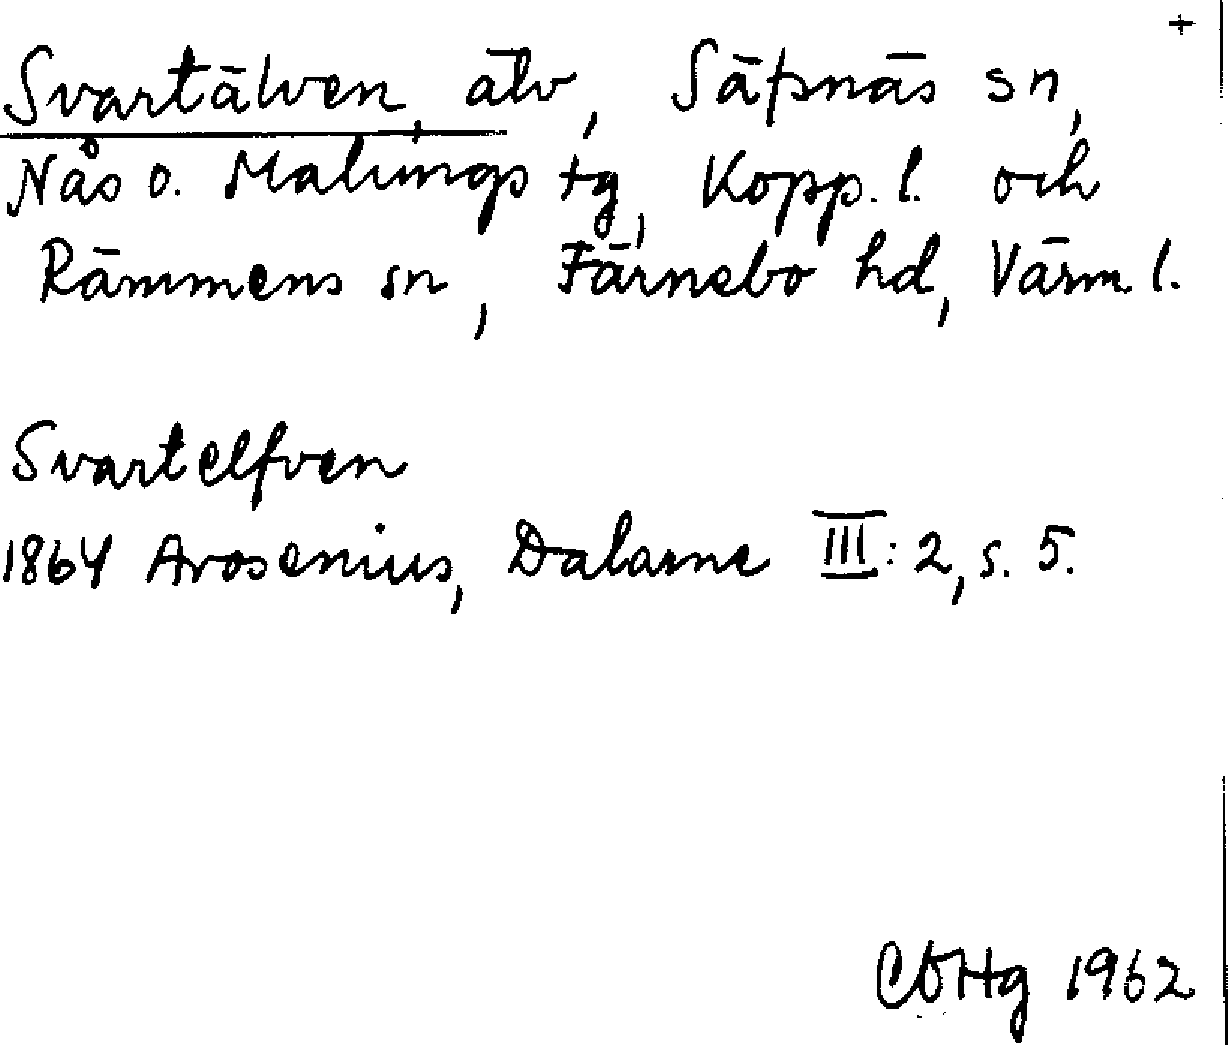 +
Svartälven, älv, Säfsnäs sn,
Nås o. Malungs tg, Kopp. l. och
Rämmens sn, Färnebo hd, Värml.
Svartelfven
1864 Arosenius, Dalarne III:2, s. 5.
1962